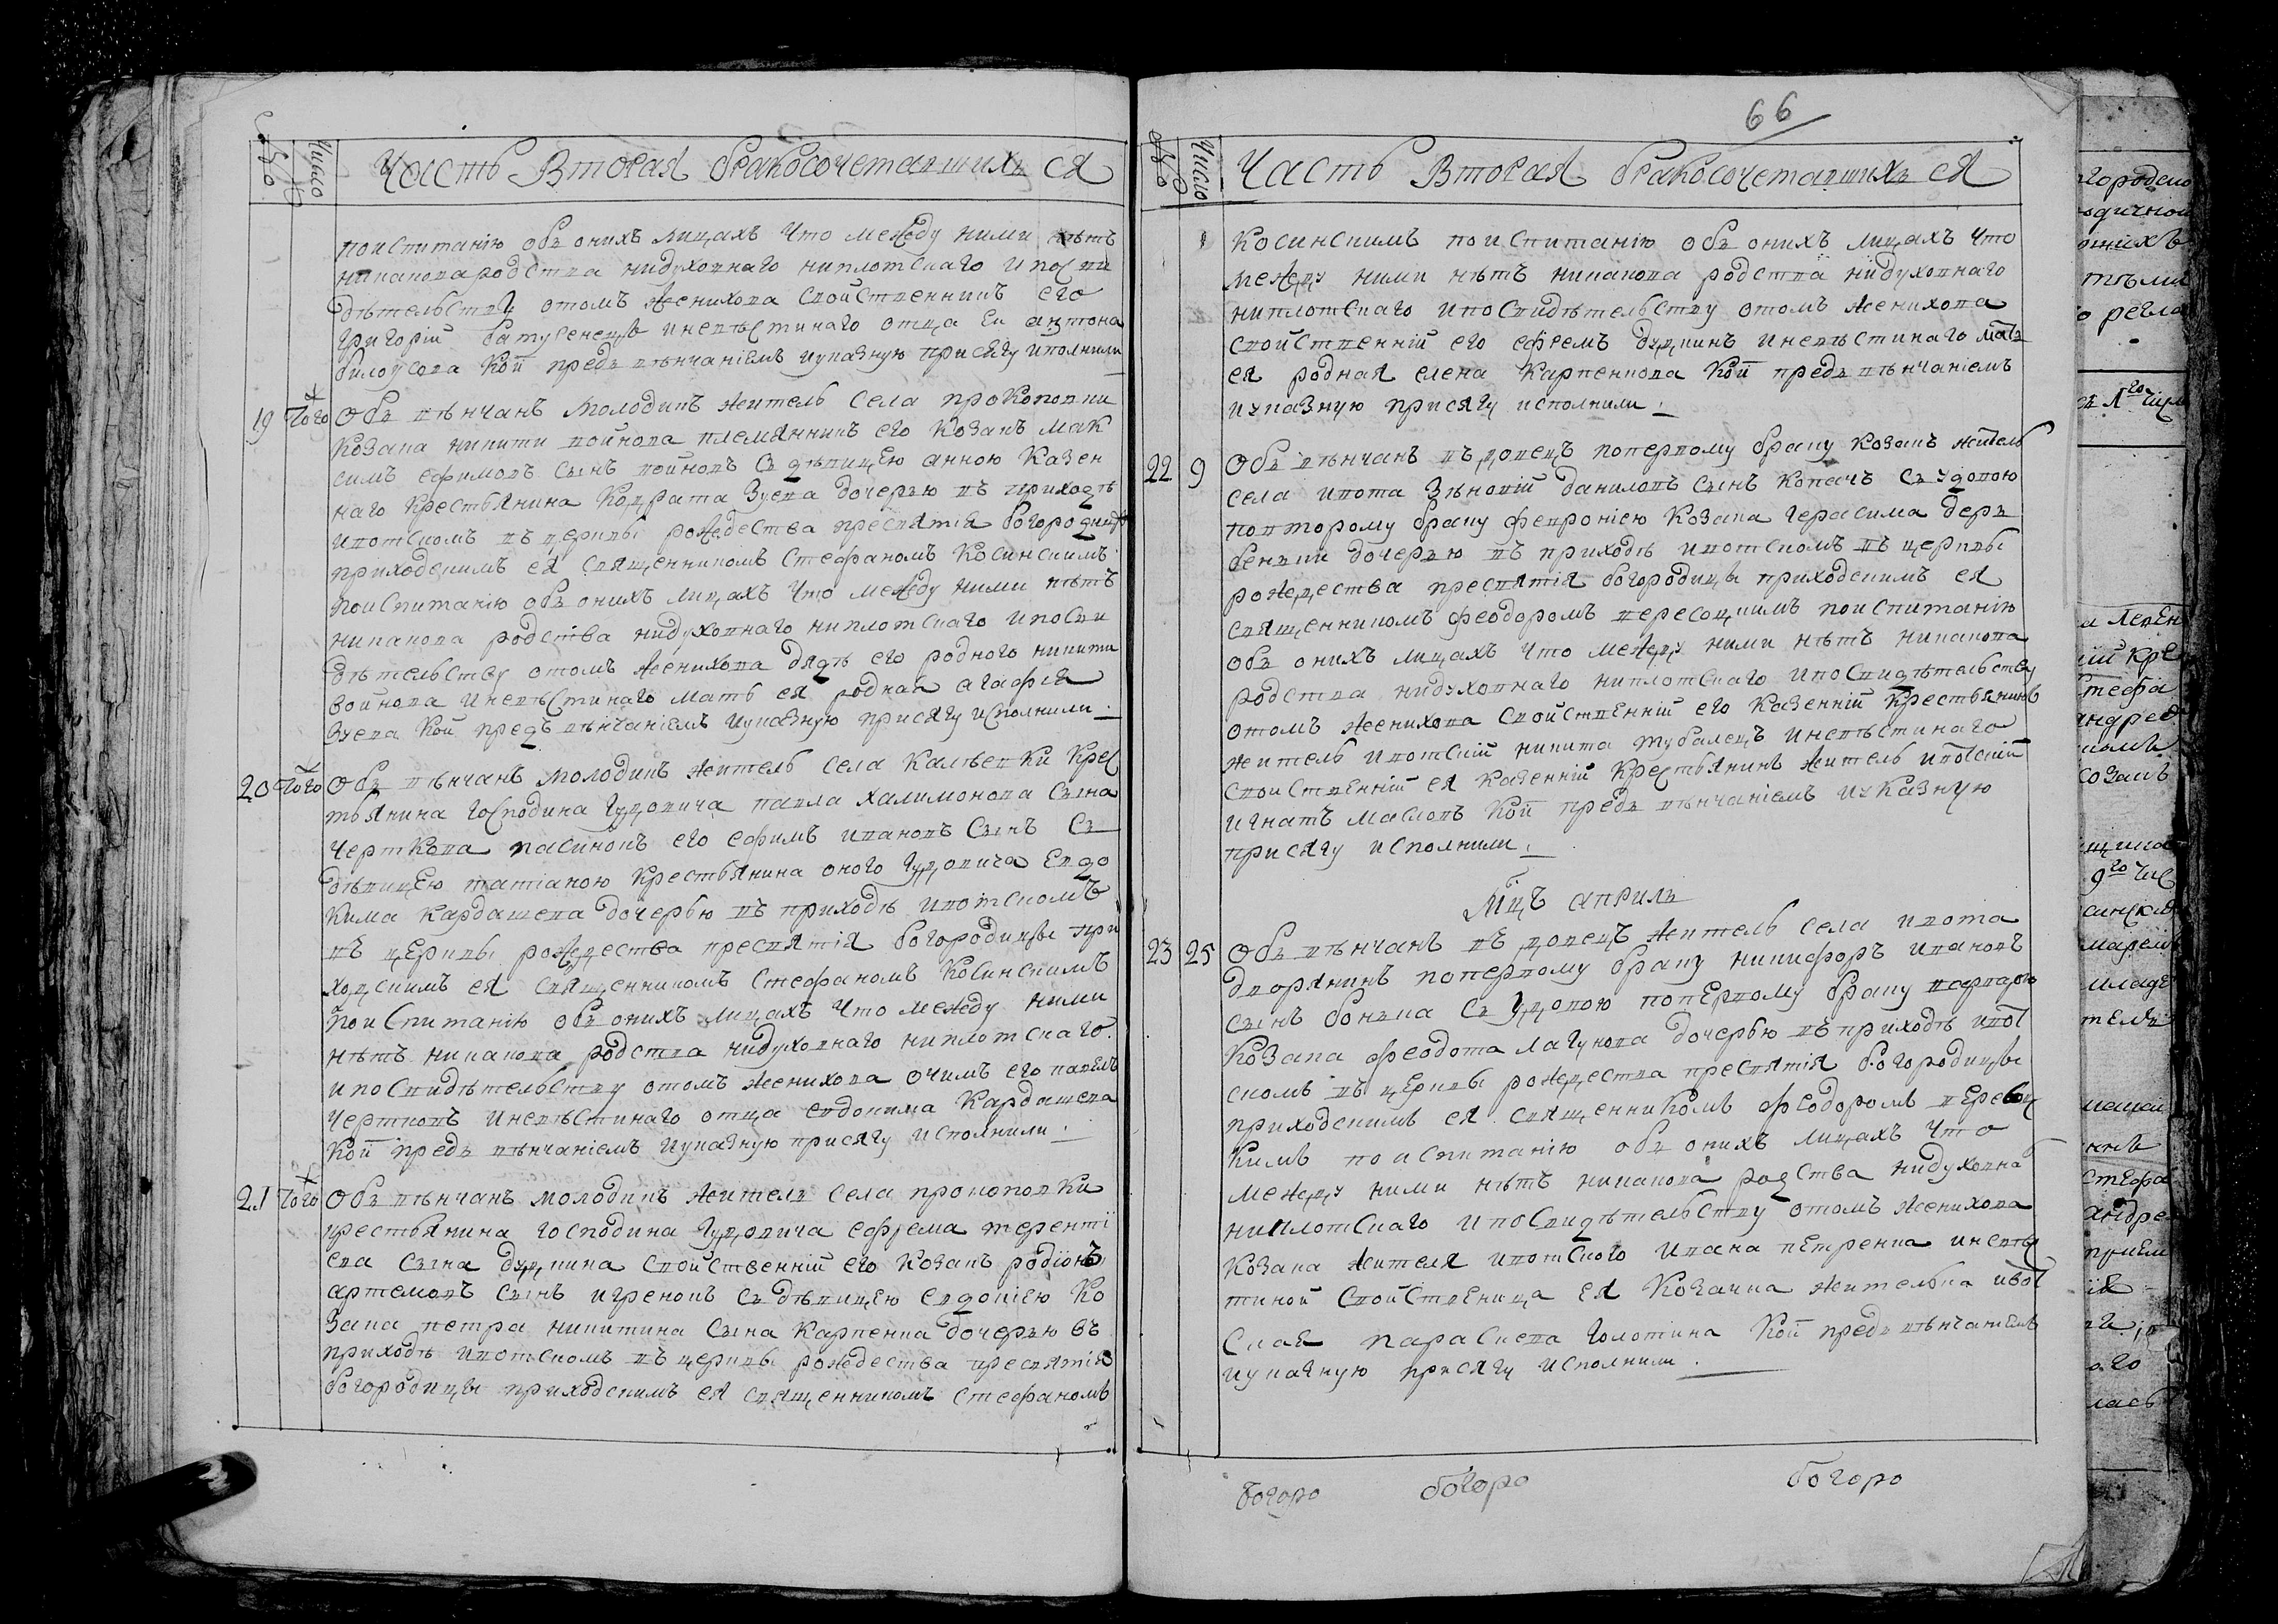 Число
Часть Вторая бракосочетавшихъ ся
поиспитанію объ онихъ лицахъ Что между ними нѣтъ
никакова родства нидуховнаго ниплотскаго ипосви
дѣтельству отомъ женихова свойственникъ его
Григорій батуренецъ иневѣстинаго отца ея антона
билоусова Кои предъ вѣнчаніемъ иуказную присягу исполнили
19 Того Объ вѣнчанъ молодикъ житель села прокоповки
козака никити войнова племянникъ его козакъ мак
симъ ефимовъ сынъ войновъ съ дѣвицею анною казен
наго крестьянина Кодрата Зуева дочерью въ приходѣ
ивотскомъ въ церквы рожедества пресвятія богородицы
приходскимъ ея священникомъ стефаномъ косинскимъ
поиспитанію объ онихъ лицахъ Что между ними нѣтъ
никакова родства нидуховнаго ниплотскаго ипосви
дѣтельству отомъ женихова дядѣ его родного никити
войнова иневѣстинаго мать ея родная агафія
Зуева Кои предъ вѣнчаніемъ иуказную присягу исполнили
20 Того Объ вѣнчанъ молодикъ житель села Калѣевки крес
тьянина господина Гудовича павла халимонова сына
Черткова пасинокъ его ефимъ ивановъ сынъ съ
дѣвицею татіаною крестьянина оного Гудовича Евдо
кима Кардашева дочерью въ приходѣ ивотскомъ
въ церквы рождества пресвятія богородицы при
ходскимъ ея священникомъ стефаномъ косинскимъ
поиспитанію объ онихъ лицахъ Что между ними
нѣтъ никакова родства нидуховнаго ниплотскаго
ипосвидѣтельству отомъ женихова очимъ его павелъ
Чертковъ иневѣстинаго отца евдокима Кардашева
Кои предъ вѣнчаніемъ иуказную присягу исполнили
21 Того Объ вѣнчанъ молодикъ жителъ села прокоповки
крестьянина господина Гудовича ефрема теренті
ева сына дудкина свойственній его козакъ родіонъ
артемовъ сынъ игренокъ съ дѣвицею евдокіею ко
зака петра никитина сына Карпенка дочерью въ
приходѣ ивотскомъ въ церквы рождества пресвятія
богородицы приходскимъ ея священникомъ стефаномъ
66
Число
Часть Вторая бракосочетавшихъ ся
Косинскимъ поиспитанію объ онихъ лицахъ Что
между ними нѣтъ никакова родства нидуховнаго
ниплотскаго ипосвидѣтельству отомъ женихова
свойственній его ефремъ дудкинъ иневѣстинаго мать
ея родная елена Карпенкова Кои предъ вѣнчаніемъ
иуказную присягу исполнили
22 9 Объ вѣнчанъ въдовецъ поперпому браку козакъ житель
села ивота Зѣновій даниловъ сынъ Копачъ съ удовою
повторому браку февроніею козака герасима дерь
бенки дочерью въ приходѣ ивотскомъ въ церквы
рождества пресвятія богородицы приходскимъ ея
священникомъ феодоромъ пересоцкимъ поиспитанію
объ онихъ лицахъ что между ними нѣтъ никакова
родства нидуховнаго ниплотскаго ипосвидѣтельству
отомъ женихова свойственній его казенній крестьянинъ
житель ивотскій никита жубалецъ иневѣстинаго
свойственній ея казенній крестьянинъ житель ивотскій
игнатъ масловъ Кои предъ вѣнчаніемъ иуказную
присягу исполнили
Мцъ априль
23 25 Объ вѣнчанъ въдовецъ житель села ивота
дворянинъ поперпому браку никифоръ ивановъ
сынъ бонъка съ удовою поперпому браку варварою
козака феодота лагунова дочерью въ приходѣ ивот
скомъ въ церквы рождества пресвятія богородицы
приходскимъ ея священникомъ феодоромъ пересоц
кимъ поиспитанію объ онихъ лицахъ Что
между ними нѣтъ никакова родства нидуховна
ниплотскаго ипосвидѣтельству отомъ женихова
козака жителя ивотского ивана петренка иневѣс
тиной свойственица ея козачка жителька ивот
ская параскева голотина Кои предъ вѣнчаніемъ
иуказную присягу исполнили
богоро богоро богоро